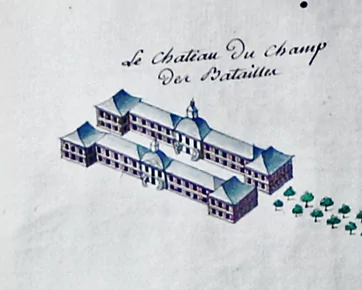 Le Chateau Du Champ
Des Batailles